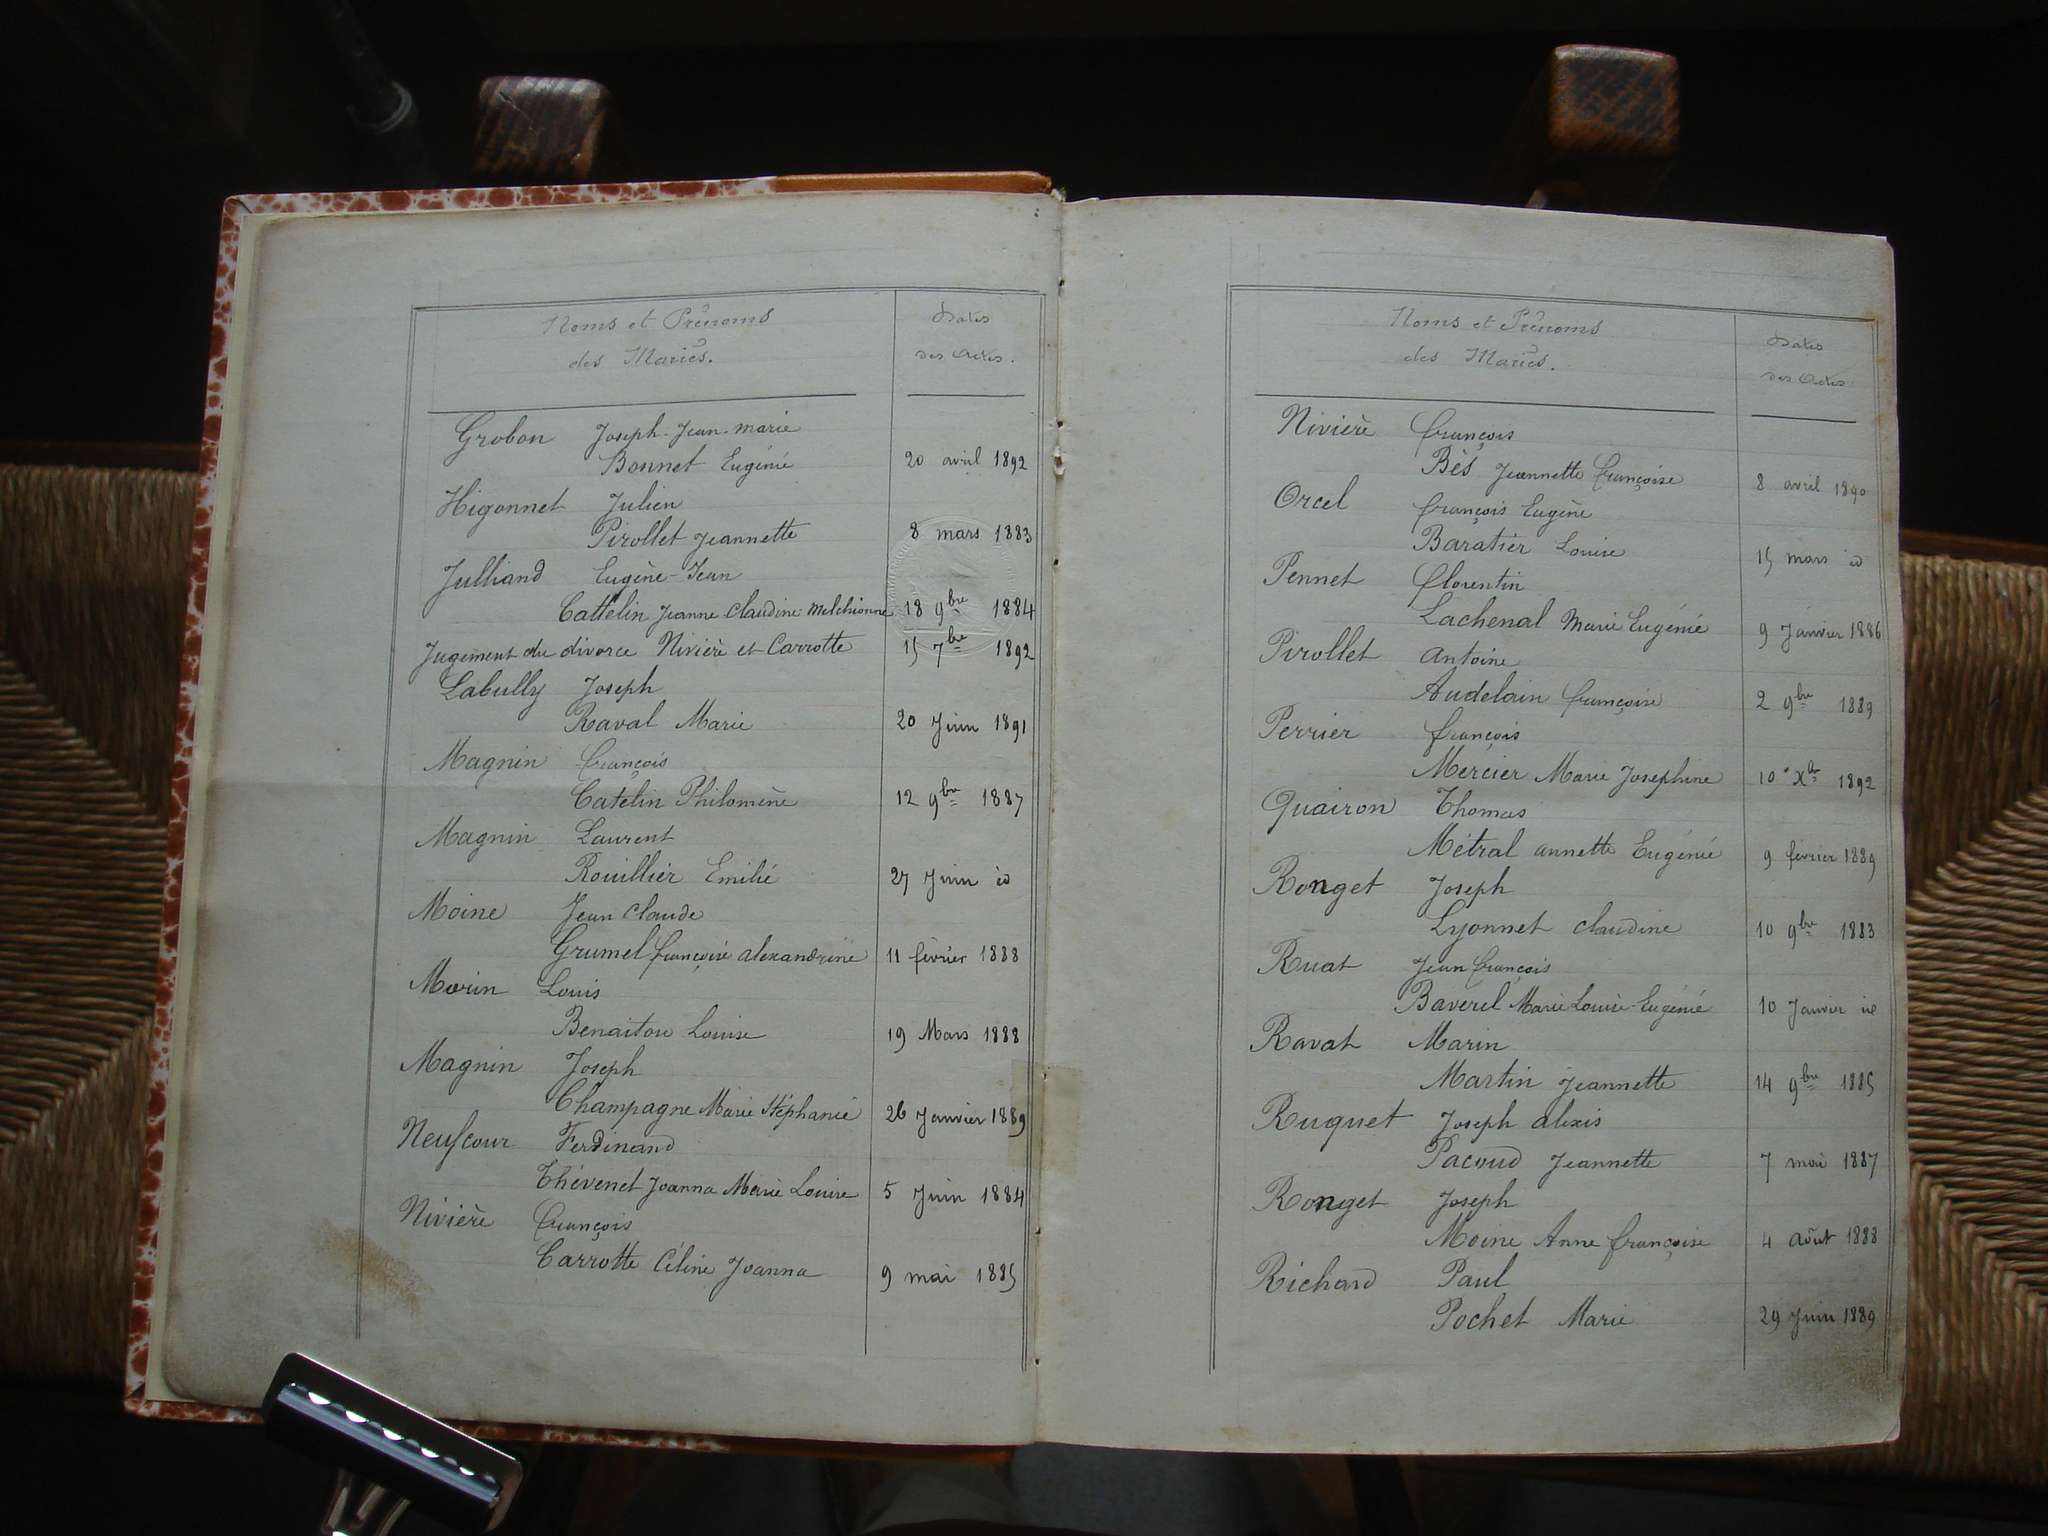 Noms et Prénoms
des Mariés.
Dates
des Actes.
Grobon Joseph-Jean-Marie
Bonnet Eugénie 20 avril 1892
Higonnet Julien
Pirollet Jeannette 8 mars 1883
Julliand Eugène-Jean
Cattelin Jeanne Claudine Melchionne 18 9bre 1884
Jugement du divorce Nivière et Carrotte 15 7bre 1892
Labully Joseph
Raval Marie 20 Juin 1891
Magnin François
Catelin Philomène 12 9bre 1887
Magnin Laurent
Rouillier Emilie 27 Juin id
Moine Jean Claude
Grumel françoise alexandrine 11 février 1888
Morin Louis
Benaiton Louise 19 Mars 1888
Magnin Joseph
Champagne Marie Stéphanie 26 Janvier 1889
Neufcour Ferdinand
Thévenet Joanna Marie Louise 5 Juin 1884
Nivière François
Carrotte Céline Joanna 9 mai 1885
Noms et Prénoms
des Mariés.
Dates
des Actes
Nivière François
Bès Jeannette Françoise 8 avril 1890
Orcel François Eugène
Baratier Louise 15 mars id
Pennet Florentin
Lachenal Marie Eugénie 9 Janvier 1886
Pirollet Antoine
Audelain françoise 2 9bre 1889
Perrier François
Mercier Marie Josephine 10 Xbr 1892
Quairon Thomas
Métral annette Eugénie 9 février 1889
Ronget Joseph
Lyonnet Claudine 10 9bre 1883
Ruat Jean François
Baverel Marie Louise-Eugénie 10 Janvier id
Ravat Marin
Martin Jeannette 14 9bre 1885
Ruguet Joseph alexis
Pacoud Jeannette 7 mai 1887
Ronget Joseph
Moine Anne françoise 4 août 1888
Richard Paul
Pochet Marie 29 Juin 1889